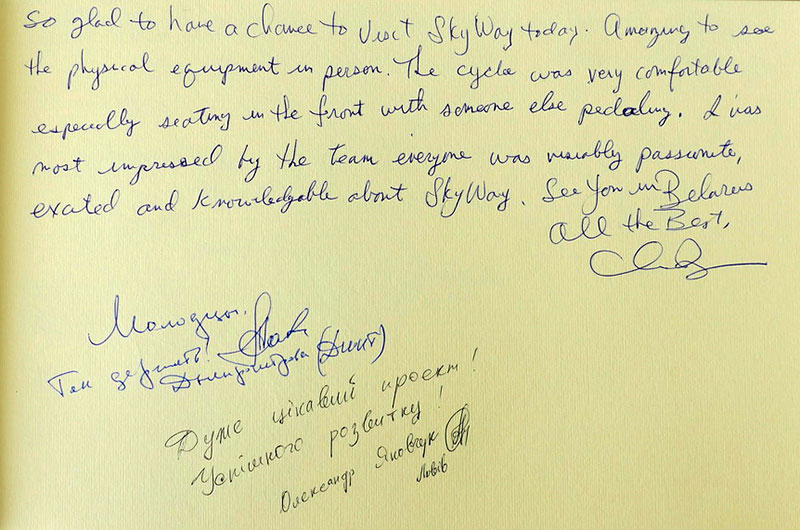 So glad to have a chance to visit SkyWay today. Amazing to see
the physical equipment in person. The cycle was very comfortable
especially seating in the front with someone else pedaling. I was
most impressed by the team everyone was visiably passionate,
excated and knowledgable about SkyWay. See You in Belarus
All the Best,
Молодцы.
Так держать!
Дуже цікавий проєкт!
Успішного розвитку!
Олександр Яковчук
Львів